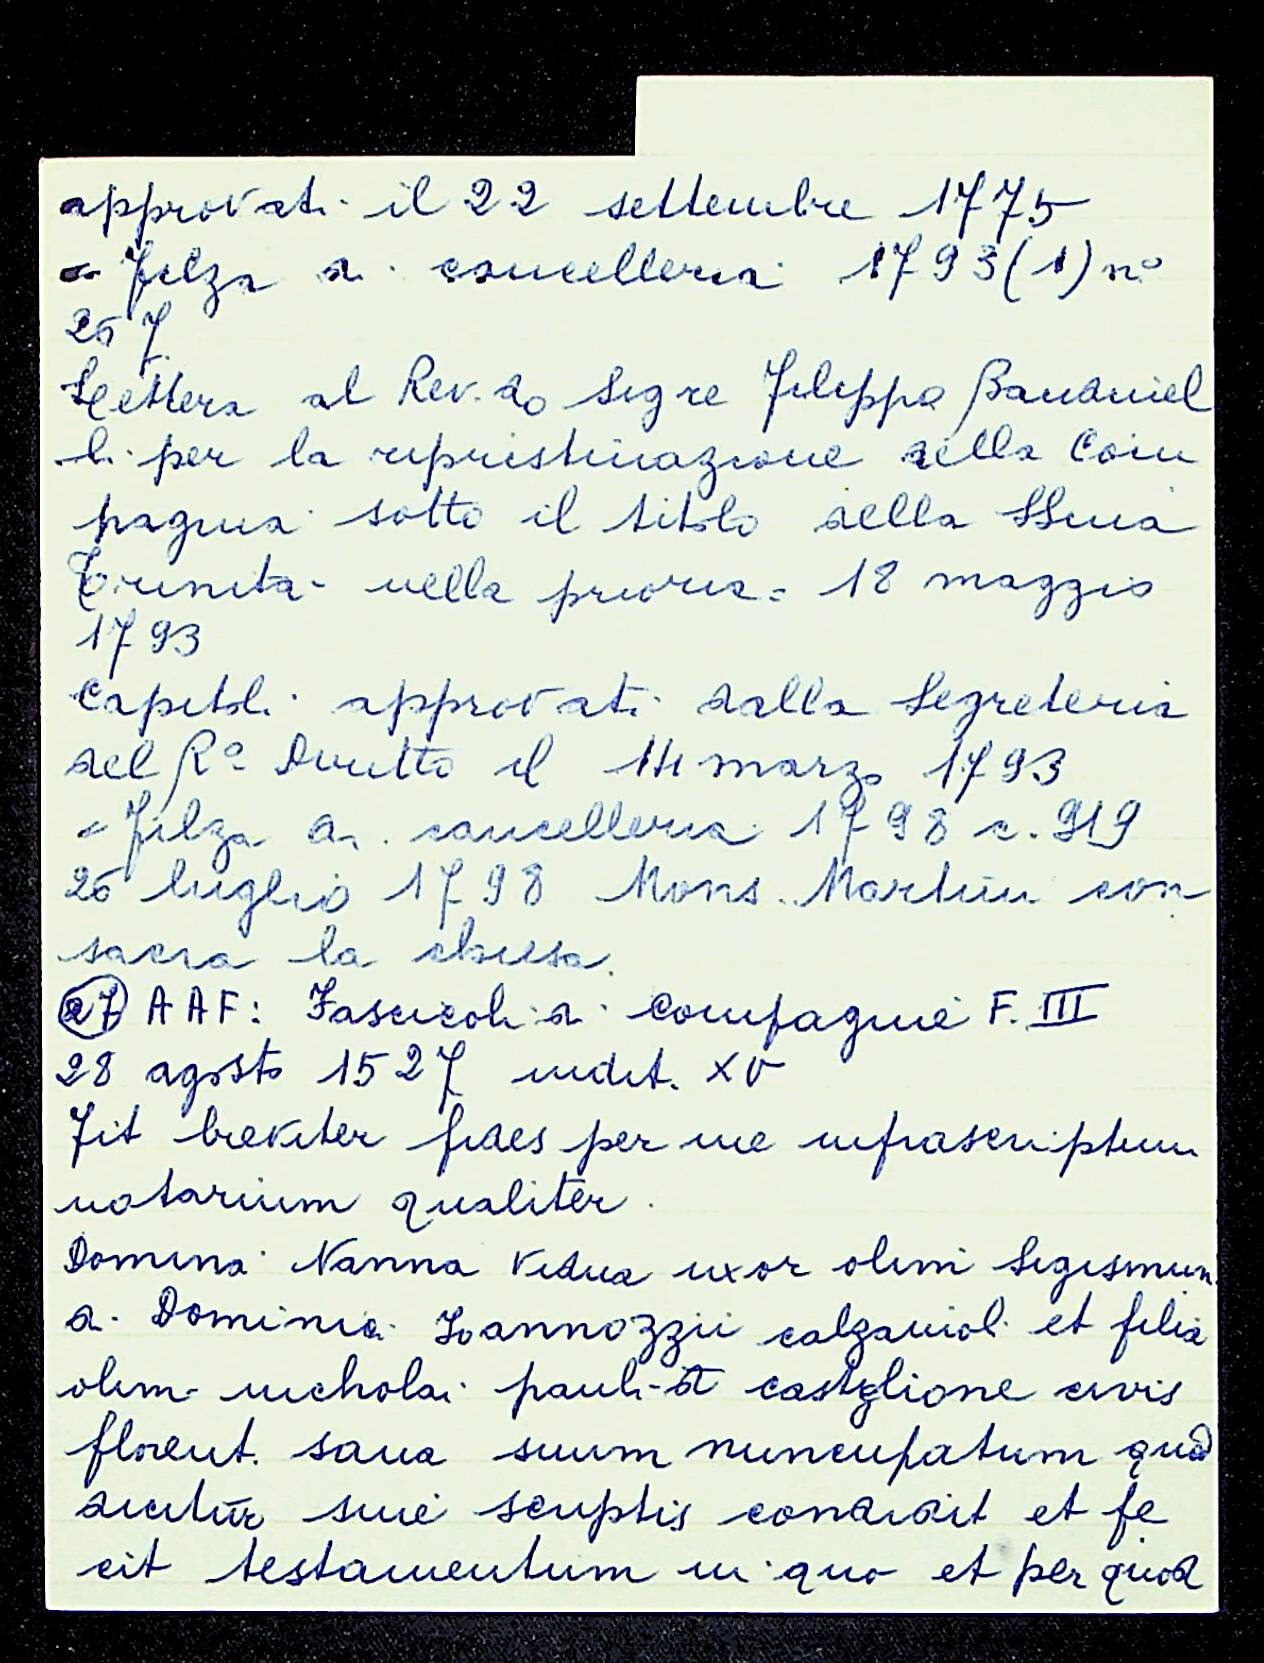 approvati il 22 settembre 1775
= Filza di cancelleria 1793 (1) n°
267
Lettera al Rev.do Sigre Filippo Bandinel
li per la ripristinazione della Com
pagnia sotto il titolo della SSma
Trinita- nella prioria = 18 maggio
1793
Capitoli approvati dalla Segreteria
del R° Diritto il 14 marzo 1793
= Filza di cancelleria 1798 c. 919
26 luglio 1798 Mons. Martini con
sacra la chiesa.
27 AAF: Fascicoli di Compagnie F. III
28 agosto 1527 indit. XV
Fit breviter fides per me infrascriptum
notarium qualiter.
Domina Nanna vidua uxor olim Sigismun
di Dominici Ioannozzii calzaiuoli et filia
olim nicholai pauli di castiglione civis
florent. sana suum nuncupatum quod
dicitur sine scriptis condidit et fe
cit testamentum in quo et per quod